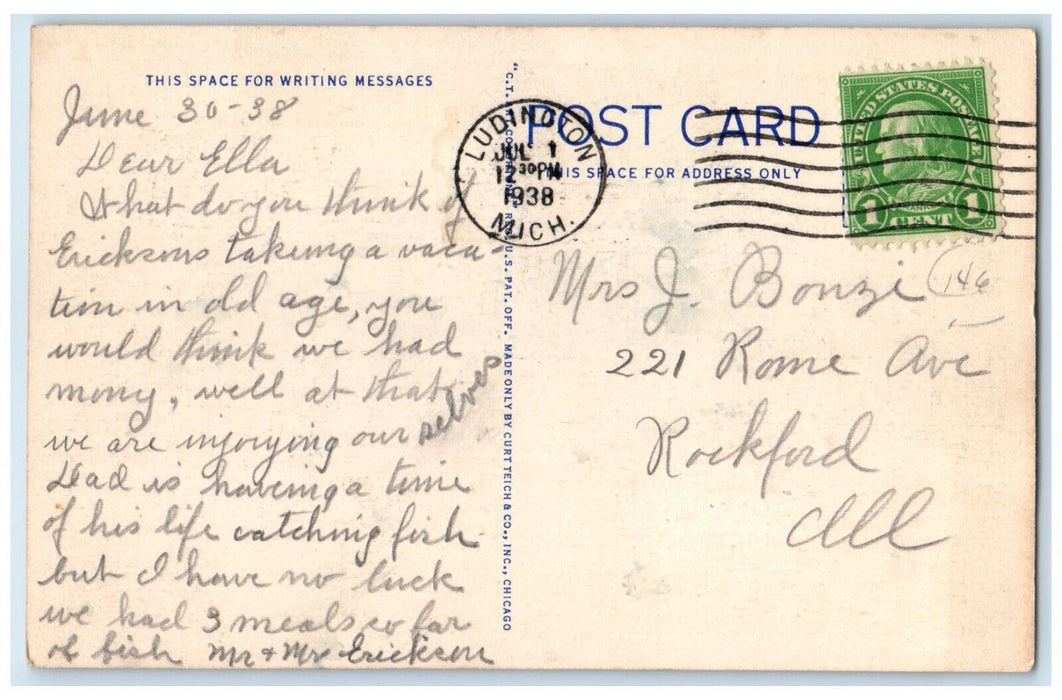 THIS SPACE FOR WRITING MESSAGES
June 30-38
Dear Ella
What do you think of
Ericksons taking a vaca-
tion in old age, you
would think we had
mony, well at that
we are injoying our selves
Dad is having a time
of his life catching fish
but I have no luck
we had 3 meals so far
of fish Mr + Mrs Erickson
"C.T.
U.S. PAT. OFF. MADE ONLY BY CURT TEICH & CO., INC., CHICAGO
POST CARD
THIS SPACE FOR ADDRESS ONLY
LUDINGTON
JUL 1
12 30 PM
1938
MICH.
UNITED STATES POSTAGE
FRANKLIN
1 CENT 1
Mrs J. Bonzi
146
221 Rome Ave
Rockford
Ill